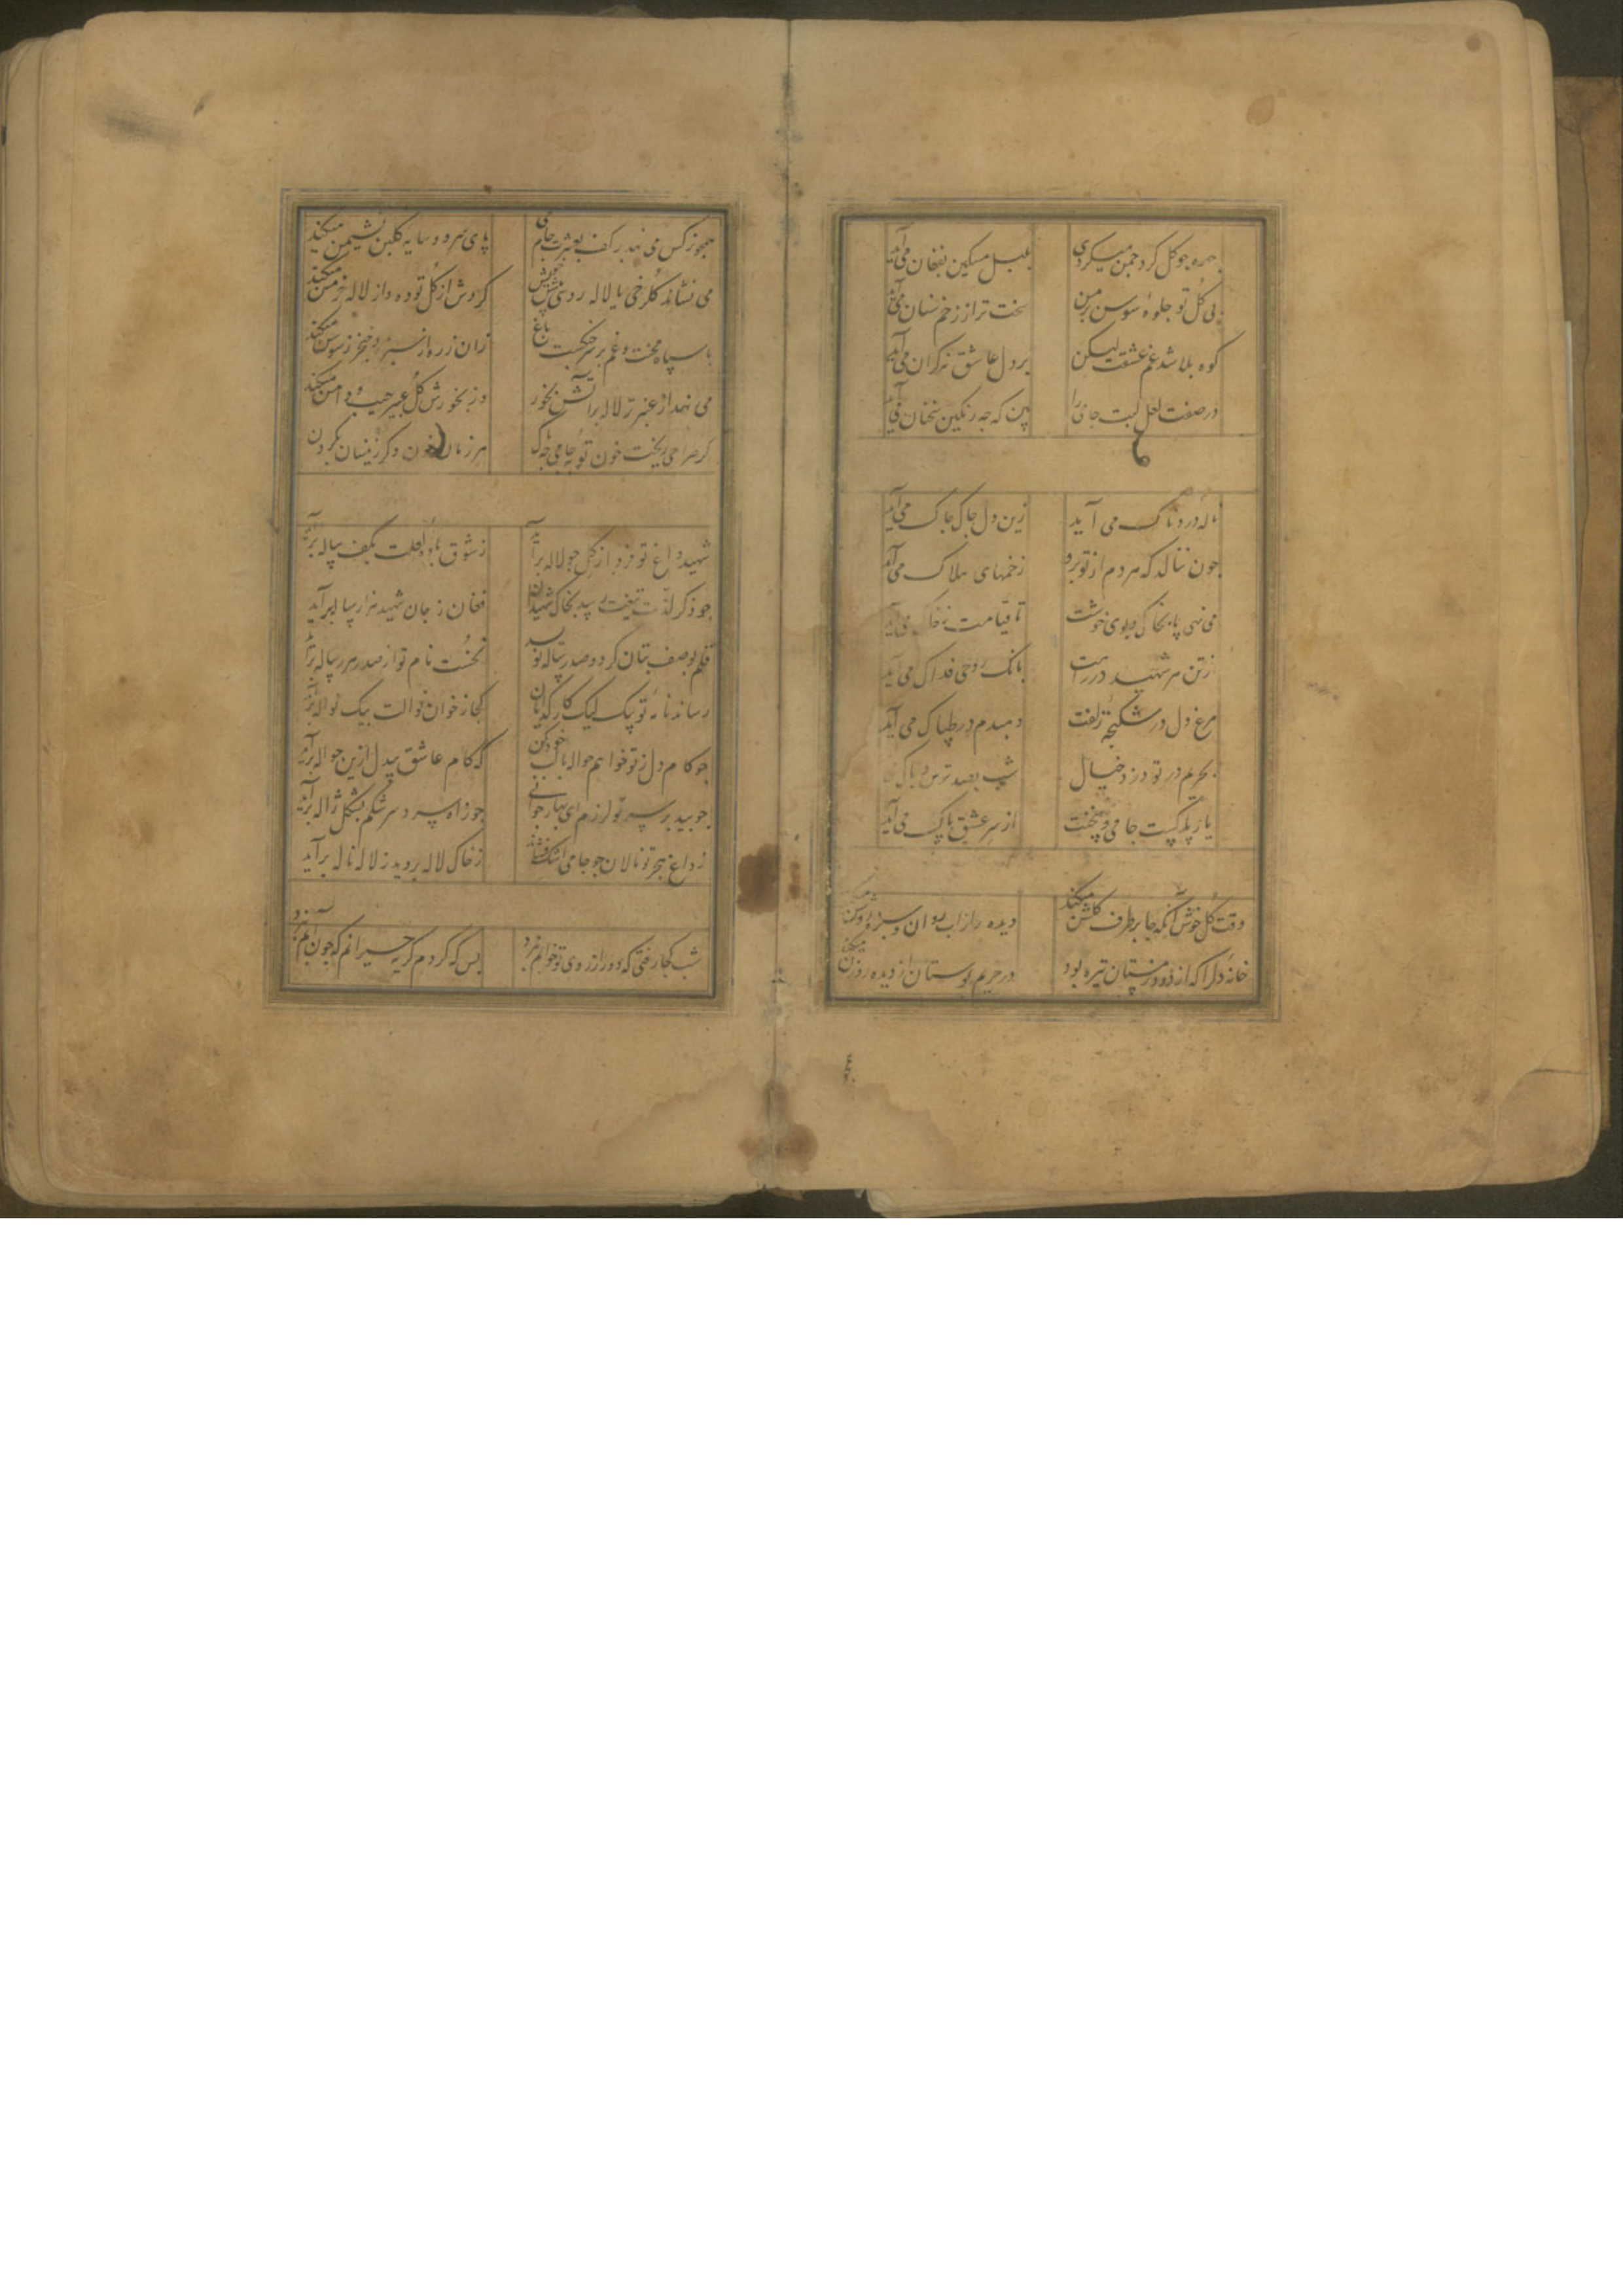 بهره جو کل کرد چمن میکردی بلبل مسکین بفغان می آید
بی گل تو جلوه سوسن بر من سخت تر از زخم سنان می آید
کوه بلا شد غم عشقت لیکن بر دل عاشق نه کران می آید
در صفت لعل لبت جامی را بین که چه رنکین سخنان می آید
ناله دردناک می آید زین دل چاک چاک می آید
چون ننالد که هر دم از تو برو زخمهای هلاک می آید
می نهی پا بخاک و بوی خوشت تا قیامت ز خاک می آید
از تن هر شهید در راهت بانک روحی فداک می آید
مرغ دل در شکنجه زلفت دمبدم در طپاک می آید
بحریم در تو دزد خیال شب بصد ترس و باک
باز بگسست جامی و همت از سر عشق پاک می آید
وقت گل خوش آنکه جا بر طرف گلشن میکند دیده را از آب روان و سبزه روشن میکند
خانه دل را که از دود زمستان تیره بود در حریم بوستان از دیده روزن میکند
همچو نرکس می نهد بر کف بعشرت جام می پای سرو و سایه کلبن نشیمن میکند
می نشاند کلرخی یا لاله رویی پیش خویش کردش از کل توده و از لاله خرمن میکند
با سپاه محنت و غم بر سر جنکست باغ زان زره از سبزه و خنجر ز سوسن میکند
می نهد از عنبر تر لاله بر آتش بخور وز بخورش کل عبیر جیب و دامن میکند
کر صراحی ریخت خون توبه جامی چه باک هر زمان خون دکر زینسان بکردن
شهید داغ تو فردا ز کل جو لاله برآید ز شوق باده لعلت بکف پیاله برآید
جو ذکر لذت تیغت رسد بخاک شهیدان فغان ز جان شهید هزار ساله برآید
قلم بوصف بتان کر دو صد رساله نویسد نخست نام تو از صدر هر رساله برآید
رساند نامه تو پیک لیک کار کدایان کجا ز خوان نوالت بیک نواله برآید
جو کام دل ز تو خواهم حواله بالب خود کن که کام عاشق بیدل ازین حواله برآید
جو بید بر سر تو لرزم ای بهار جوانی جو ز آه سرد سرشکم بشکل ژاله برآید
ز داغ هجر تو نالان جو جامی اشک فشاند ز خاک لاله بروید ز لاله ناله برآید
شب کجا رفتی که دور از روی تو خوابم نبرد بس که کردم کریه حیرانم که چون آبم نبرد